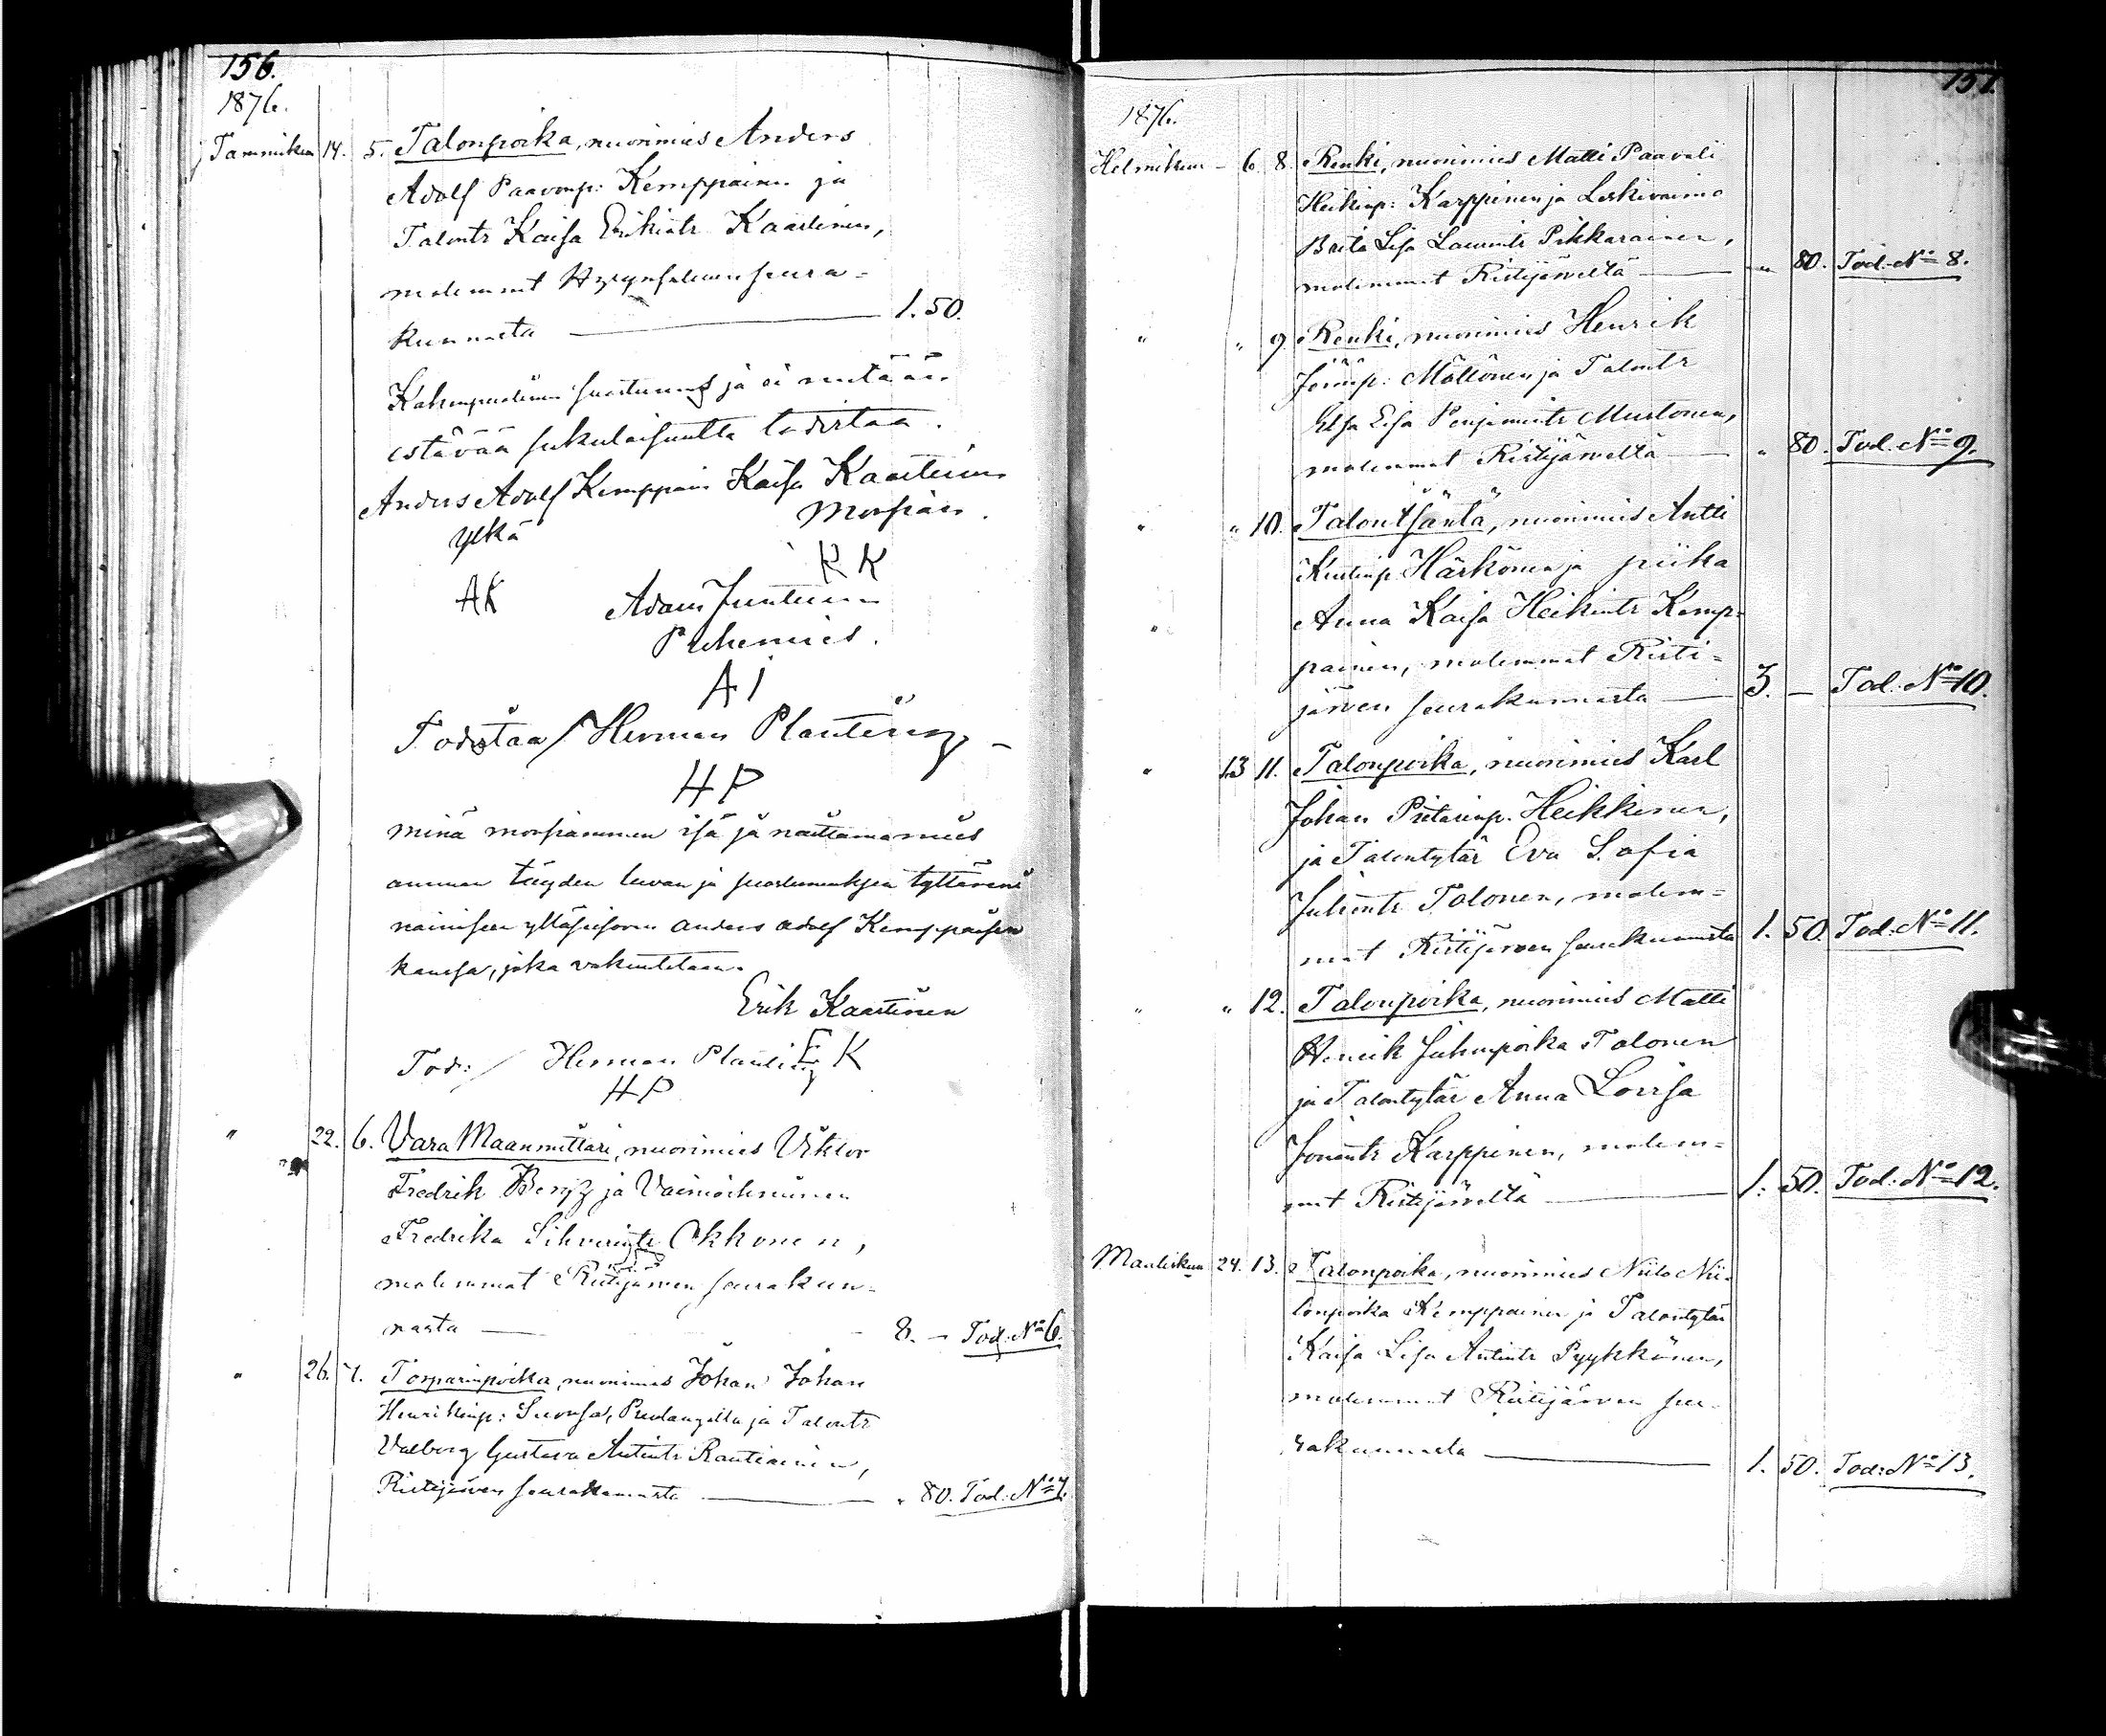 156.
1876.
Tammikuu 14. 5. Talonpoika, nuorimies Anders
Adolf Paavonp: Kemppainen ja
Talontr Kaisa Erikintr Kaartinen,
molemmat Hyrynsalmen seura-
kunnasta 1. 50.
Kahenpuolinen suostumus ja ei mitään
estävää sukulaisuutta todistaa.
Anders Adolf Kemppain Kaisa Kaartinen
ylkä morsian.
KK
AK Adam Juntunen
Puhemies.
AJ
Todistaa / Herman Planting
HP
minä morsiammen isä ja naittamamies
annan täyden luvan ja suostumuksen tyttäreni
naimiseen ylkäsmiehen anders adolf Kemppaisen
kanssa, joka vakuutetaan.
Erik Kaartinen
EK
Tod: / Herman Planting
HP
" 22. 6. Vara Maanmittari, nuorimies Viktor
Fredrik Bergz ja Vaimoihminen
Fredrika Sihverintr Okkonen,
molemmat Ristijärven seurakun-
nasta 8. - Tod: No 6.
" 26. 7. Torparinpoika, nuorimies Johan Johan
Henrikinp: Suvusa, Puolangalta ja Talontr
Valborg Gustava Antintr Rautiainen,
Ristijärven seurakunnasta " 80. Tod: No 7.
157.
1876.
Helmikuu - 6. 8. Renki, nuorimies Matti Paavali
Heikinp: Karppinen ja Leskivaimo
Brita Lisa Laurintr Pikkarainen,
molemmat Ristijärveltä " 80. Tod: No 8.
" " 9. Renki, nuorimies Henrik
Mältönen ja Talontr
Elsa Lisa Penjamintr Mustonen,
molemmat Ristijärveltä " 80. Tod: No 9.
" " 10. Talonisäntä, nuorimies Antti
Kustinp. Härkönen ja piika
Anna Kaisa Heikintr Kemp-
painen, molemmat Risti-
järven seurakunnasta 3. - Tod: No 10.
" 13 11. Talonpoika, nuorimies Karl
Johan Pietarinp. Heikkinen,
ja Talontytär Eva Sofia
Juhontr Tolonen, molem-
mat Ristijärven seurakunnasta 1. 50. Tod: No 11.
" " 12. Talonpoika, nuorimies Matti
Henrik Juhonpoika Tolonen
ja Talontytär Anna Lovisa
Karppinen, molem-
mat Ristijärveltä 1. 50. Tod: No 12.
Maaliskuu 24. 13. Talonpoika, nuorimies Niilo Nii-
lonpoika Kemppainen ja Talontytär
Kaisa Lisa Antintr Pyykkönen,
molemmat Ristijärven seu-
rakunnasta 1. 50. Tod: No 13.